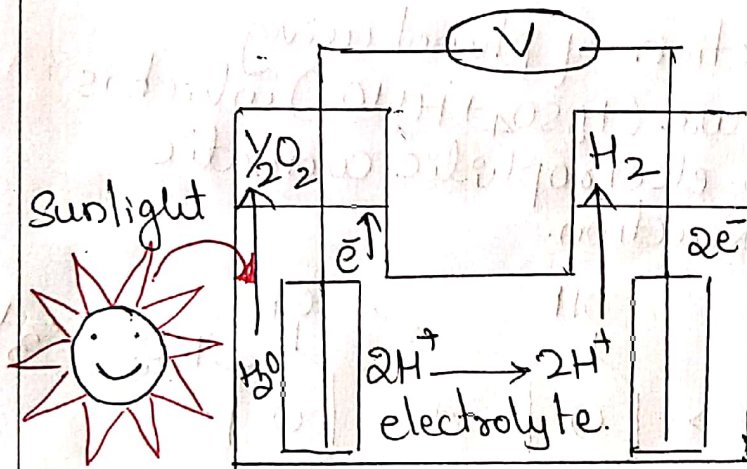 V
½O₂
H₂
Sunlight
e⁻↑
2e⁻
H₂O
2H⁺ → 2H⁺
electrolyte.